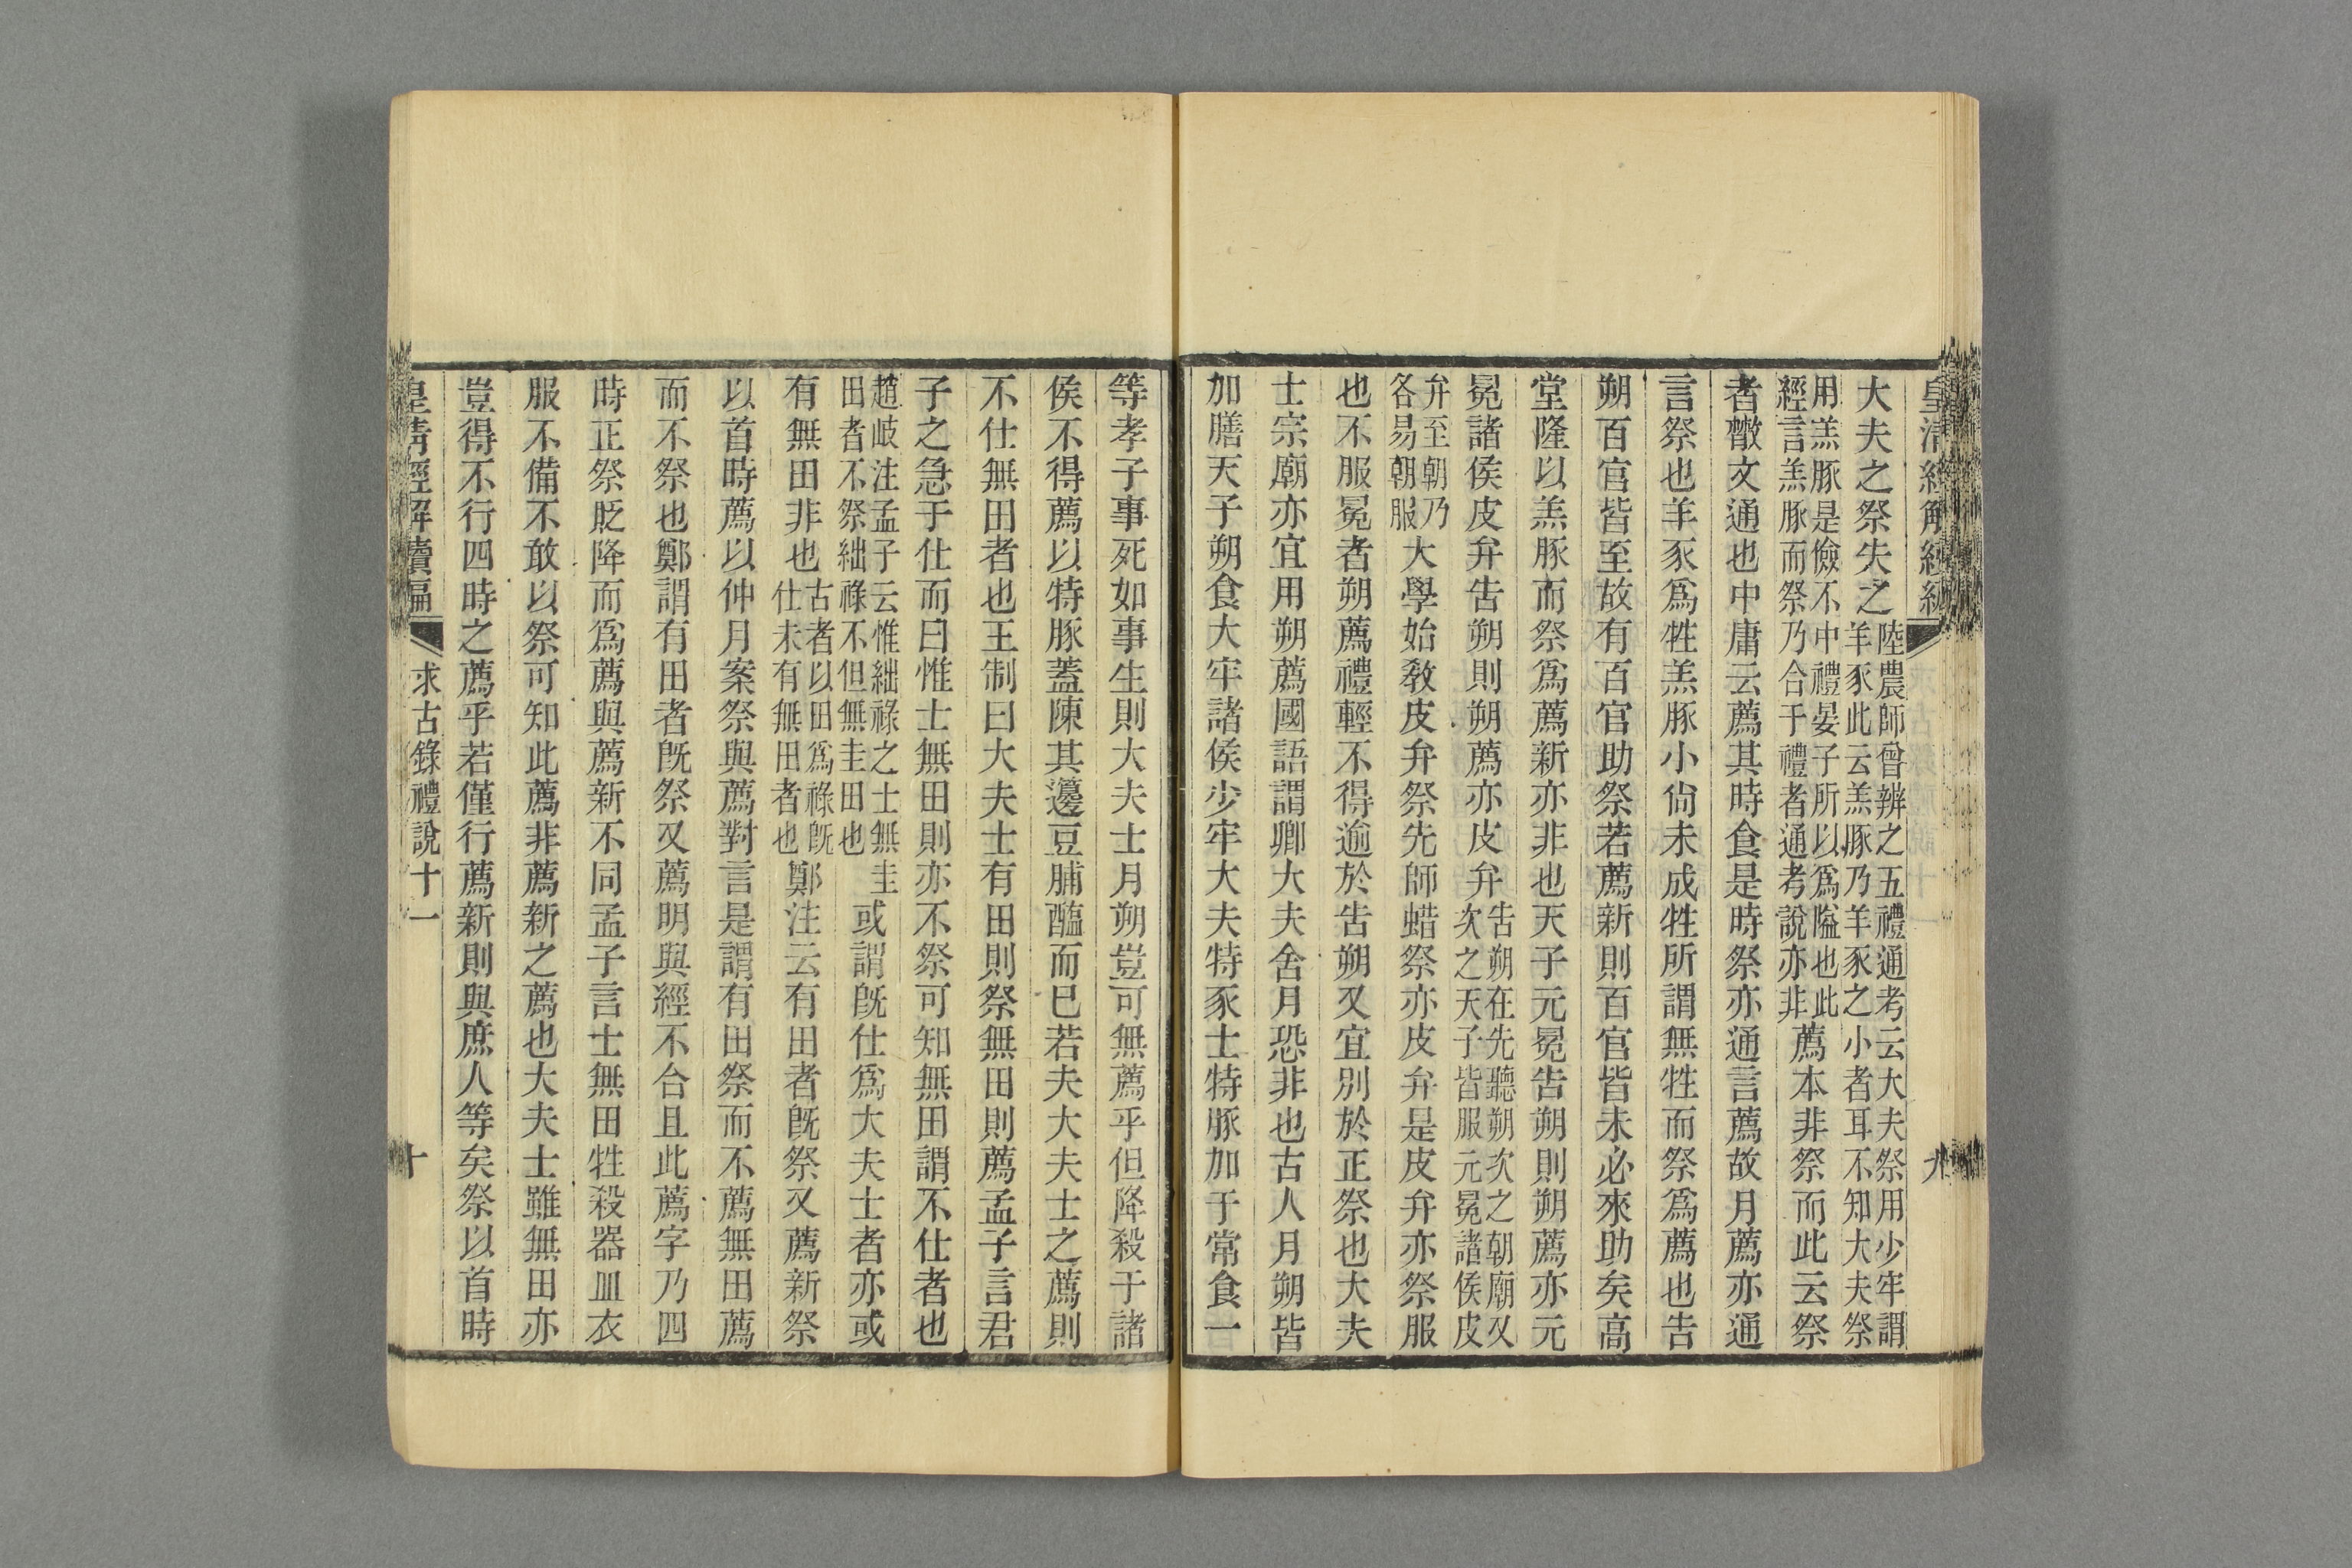 大夫之祭失之陸農師曾辨之五禮通考云大夫祭用少牢謂羊豕此云羔豚乃羊豕之小者耳不知大夫祭
用羔豚是儉不中禮晏子所以爲隘也此經言羔豚而祭乃合于禮者通考說亦非薦本非祭而此云祭
者散文通也中庸云薦其時食是時祭亦通言薦故月薦亦通
言祭也羊豕爲牲羔豚小尙未成牲所謂無牲而祭爲薦也告
朔百官皆至故有百官助祭若薦新則百官皆未必來助矣高
堂隆以羔豚而祭爲薦新亦非也天子元冕告朔則朔薦亦元
冕諸侯皮弁告朔則朔薦亦皮弁告朔在先聽朔次之朝廟又次之天子皆服元冕諸侯皮
弁至朝乃各易朝服大學始敎皮弁祭先師蜡祭亦皮弁是皮弁亦祭服
也不服冕者朔薦禮輕不得逾於告朔又宜別於正祭也大夫
士宗廟亦宜用朔薦國語謂卿大夫舍月恐非也古人月朔皆
加膳天子朔食大牢諸侯少牢大夫特豕士特豚加于常食一
等孝子事死如事生則大夫士月朔豈可無薦乎但降殺于諸
侯不得薦以特豚蓋陳其籩豆脯醢而已若夫大夫士之薦則
不仕無田者也王制曰大夫士有田則祭無田則薦孟子言君
子之急于仕而曰惟士無田則亦不祭可知無田謂不仕者也
趙岐注孟子云惟絀祿之士無圭田者不祭絀祿不但無圭田也或謂旣仕爲大夫士者亦或
有無田非也古者以田爲祿旣仕未有無田者也鄭注云有田者旣祭又薦新祭
以首時薦以仲月案祭與薦對言是謂有田祭而不薦無田薦
而不祭也鄭謂有田者旣祭又薦明與經不合且此薦字乃四
時正祭貶降而爲薦與薦新不同孟子言士無田牲殺器皿衣
服不備不敢以祭可知此薦非薦新之薦也大夫士雖無田亦
豈得不行四時之薦乎若僅行薦新則與庶人等矣祭以首時
皇淸經解續編　求古錄禮說十一　十